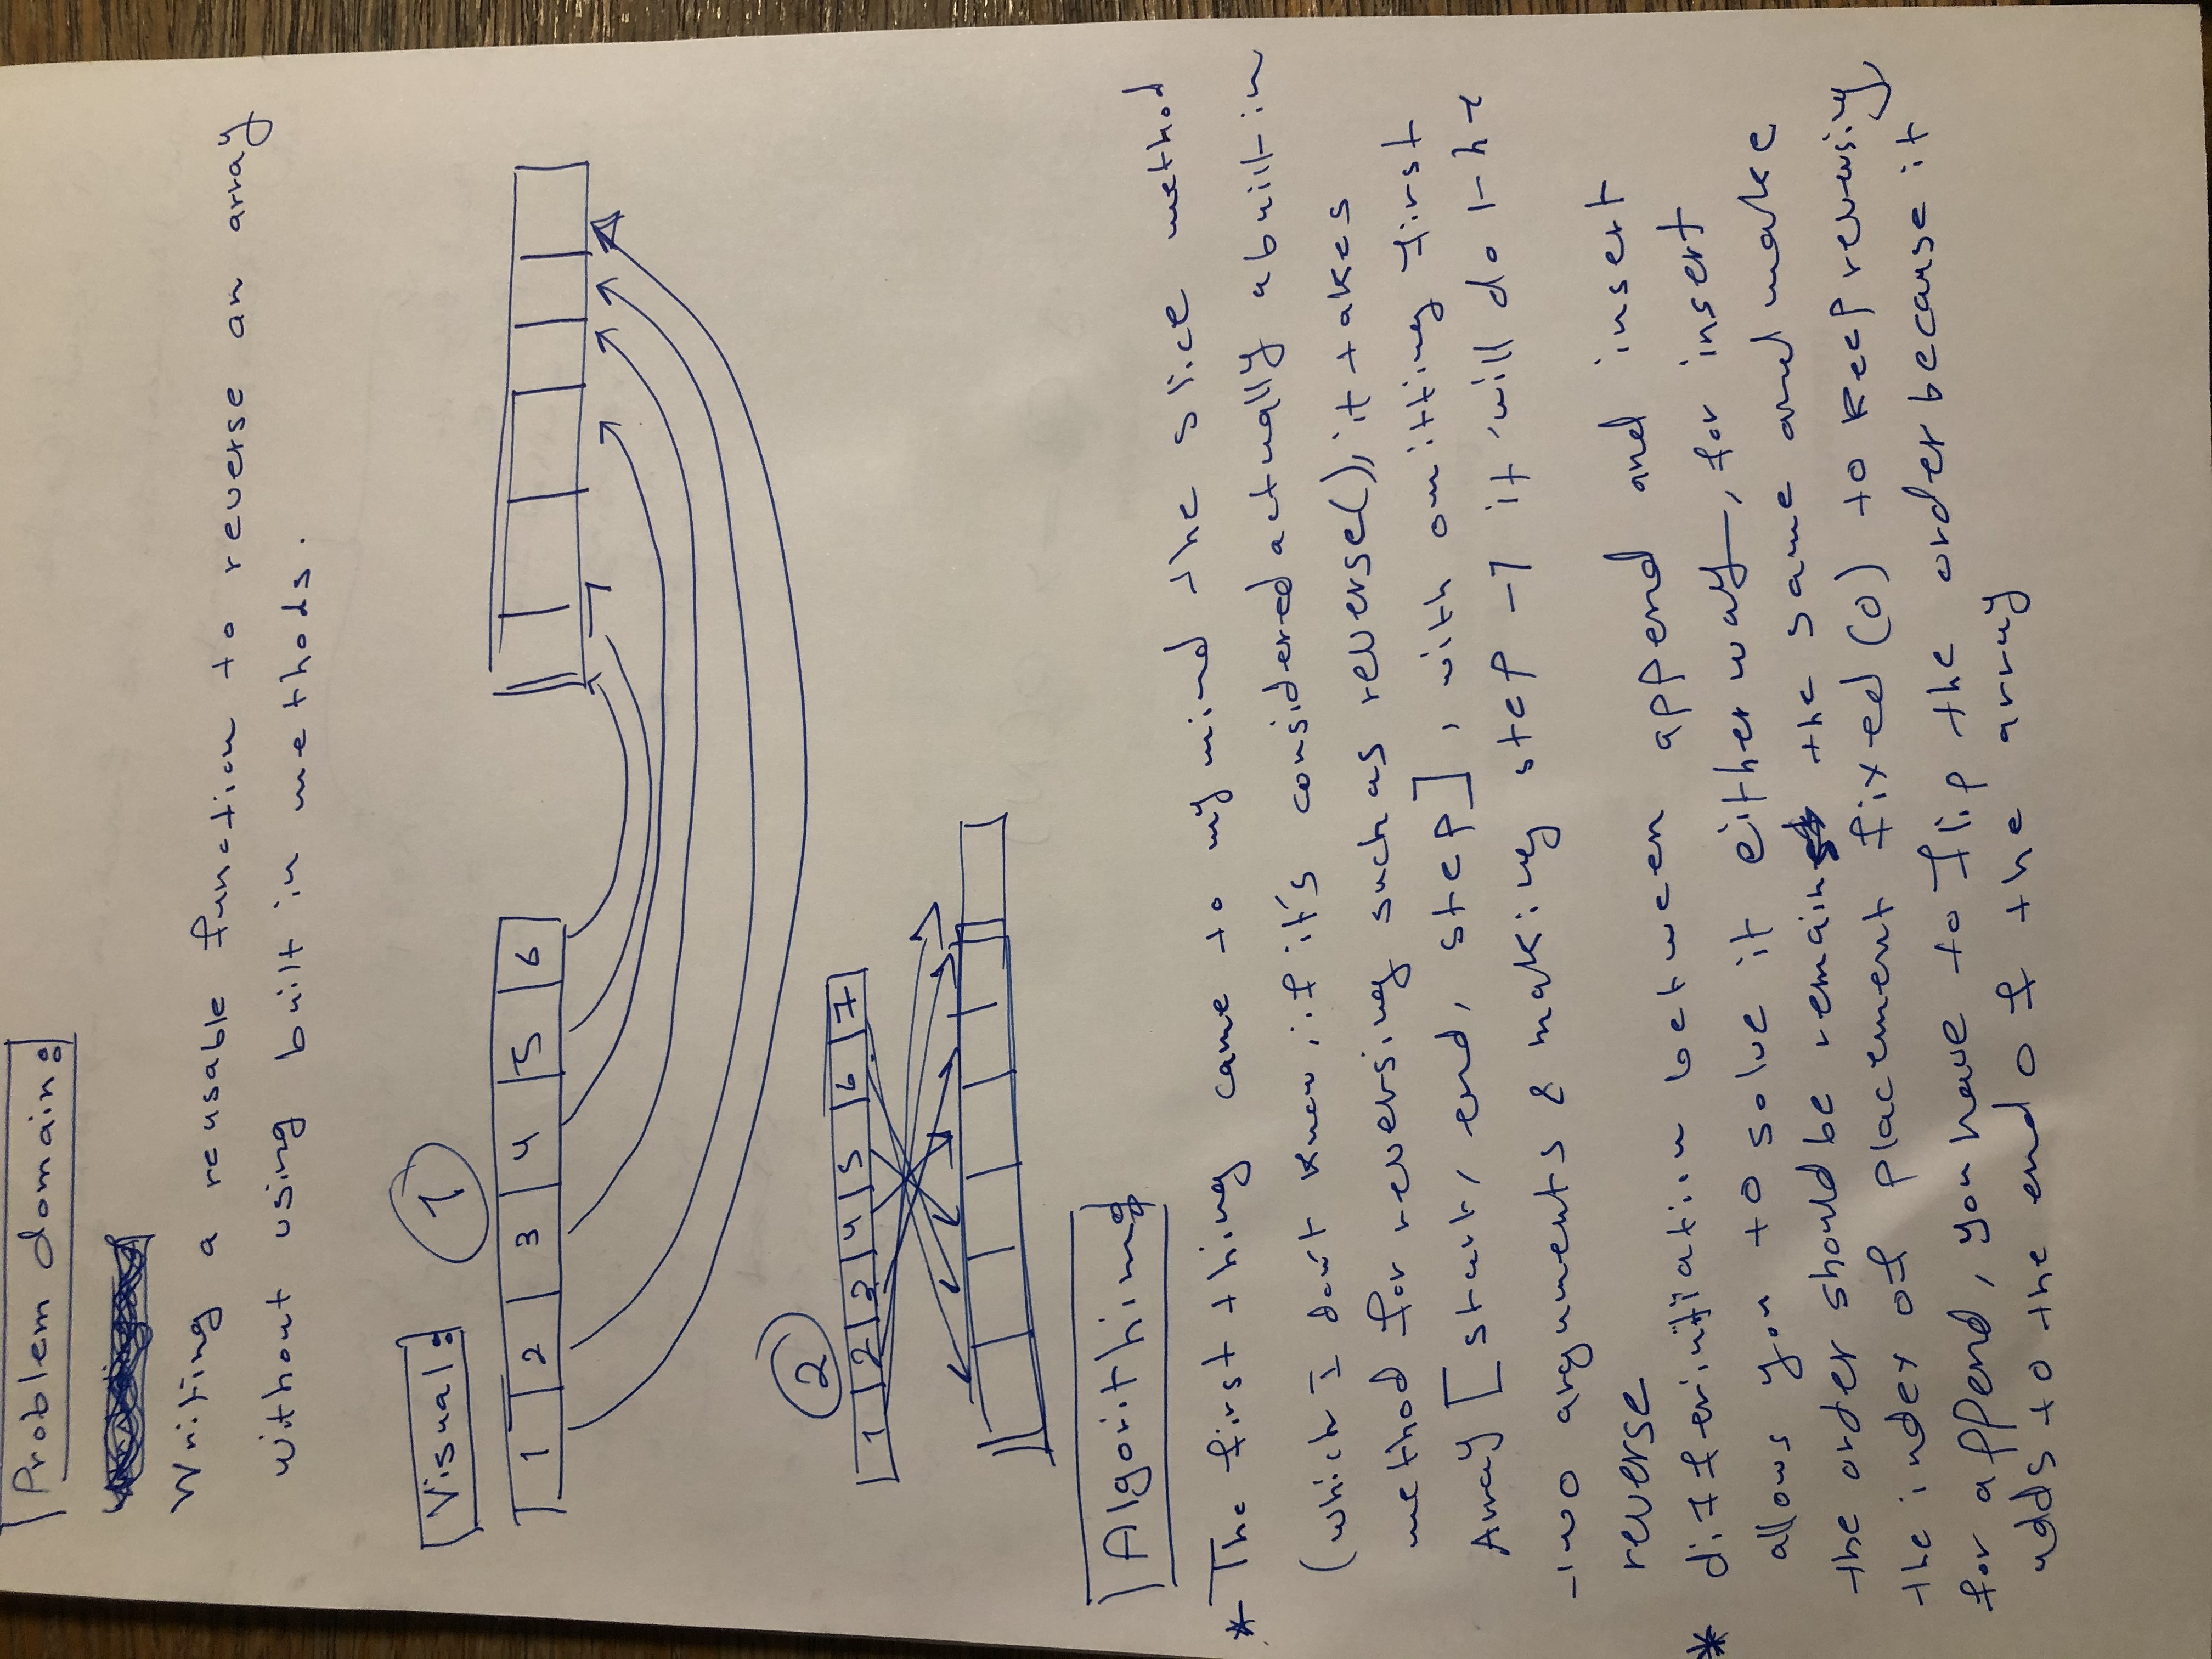 Problem domain:
Writing a reusable function to reverse an array
without using built in methods.
Visual:
1
1 2 3 4 5 6
2
1 2 3 4 5 6 7
Algorithim:
* The first thing came to my mind the slice method
(which I don't know, if it's considered actually a built in
method for reversing such as reverse(), it takes
Array [start, end, step], with omitting first
two arguments & making step -1 it will do the
reverse
* differintiation between append and insert
allows you to solve it either way, for insert
the order should be remain the same and make
the index of placement fixed (0) to keep reversing
for append, you have to flip the order because it
adds to the end of the array